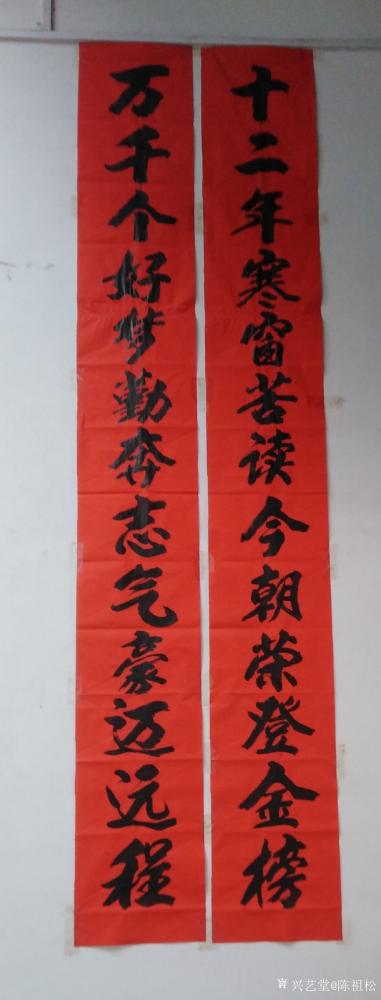 十二年寒窗苦读今朝荣登金榜
万千个好梦勤奔志气豪迈远程
兴艺堂@陈祖松